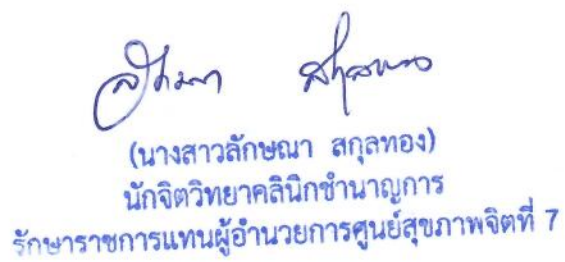 (นางสาวลักษณา สกุลทอง)
นักจิตวิทยาคลินิกชำนาญการ
รักษาราชการแทนผู้อำนวยการศูนย์สุขภาพจิตที่ 7